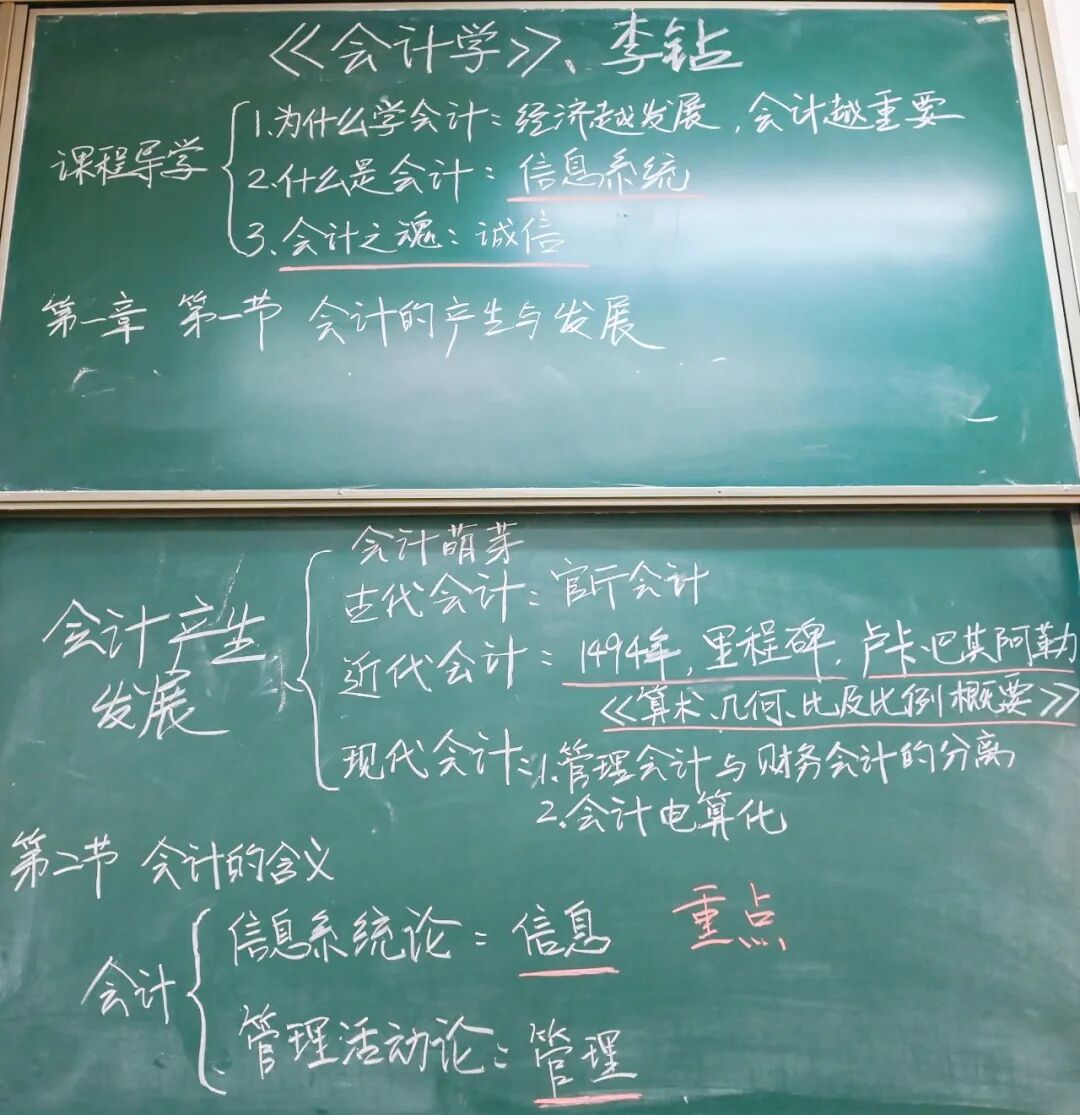 《会计学》、李钻
课程导学
1.为什么学会计：经济越发展，会计越重要
2.什么是会计：信息系统
3.会计之魂：诚信
第一章 第一节 会计的产生与发展
会计产生
发展
会计萌芽
古代会计：官厅会计
近代会计：1494年，里程碑，卢卡·巴其阿勒
《算术、几何、比及比例概要》
现代会计：1.管理会计与财务会计的分离
2.会计电算化
第二节 会计的含义
会计
信息系统论：信息
重点
管理活动论：管理